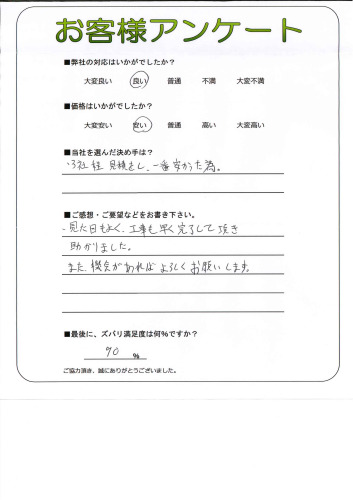 お客様アンケート
■弊社の対応はいかがでしたか？
大変良い 良い 普通 不満 大変不満
■価格はいかがでしたか？
大変安い 安い 普通 高い 大変高い
■当社を選んだ決め手は？
3社程 見積をし、一番安かった為。
■ご感想・ご要望などをお書き下さい。
・見た目もよく、工事も早く完了して頂き
助かりました。
また、機会があればよろしくお願いします。
■最後に、ズバリ満足度は何％ですか？
90 ％
ご協力頂き、誠にありがとうございました。